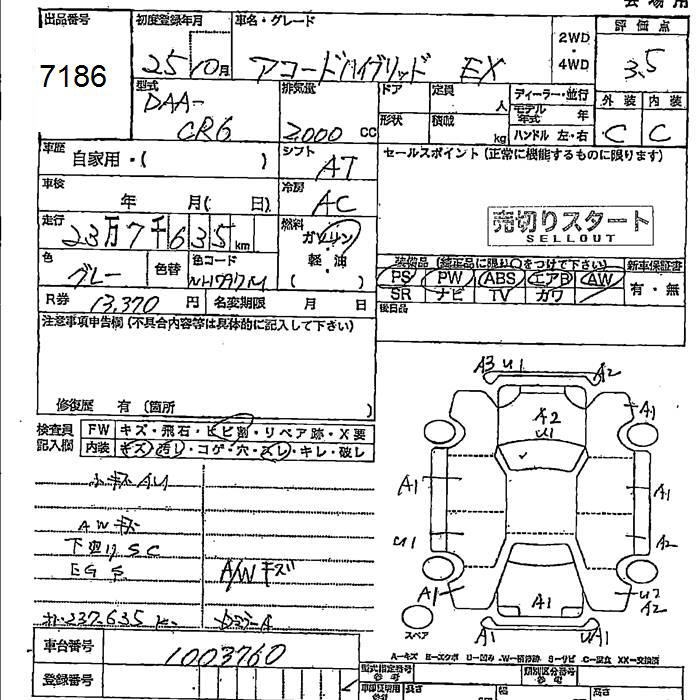 会場用
出品番号 初度登録年月 車名・グレード 2WD・4WD 評価点
7186 25 10月 アコードハイブリッド EX 3.5
型式 DAA-CR6 排気量 2000 CC ドア 定員 人 ディーラー・並行 外装 内装
形状 積載 kg モデル年式 年 C C
ハンドル 左・右
車歴 自家用・( ) シフト AT セールスポイント (正常に機能するものに限ります)
車検 年 月( 日) 冷房 AC
走行 23万7千635km 燃料 ガソリン
軽・油
( )
売切りスタート
SELLOUT
色 グレー 色替 色コード NH797M
装備品 (純正品に限り○をつけて下さい) 新車保証書
PS PW ABS エアB AW 有・無
SR ナビ TV カワ
R券 13,370 円 名変期限 月 日 後日品
注意事項申告欄 (不具合内容等は具体的に記入して下さい)
修復歴 有 (箇所 )
検査員記入欄 FW キズ・飛石・ヒビ割・リペア跡・X要
内装 キズ・汚レ・コゲ・穴・スレ・キレ・破レ
A3 U1 A2
A2 U1 A1
小キズ AU
A1 A1
AWキズ
下廻り SC U1 A2
EG S A/Wキズ
A1 A1 U2 A2
237.635
スペア A1 UA1
A-キズ E-エクボ U-凹み W-補修跡 S-サビ C-腐食 XX-交換済
車台番号 1003760 型式指定番号 参考 類別区分番号 参考
登録番号 長さ